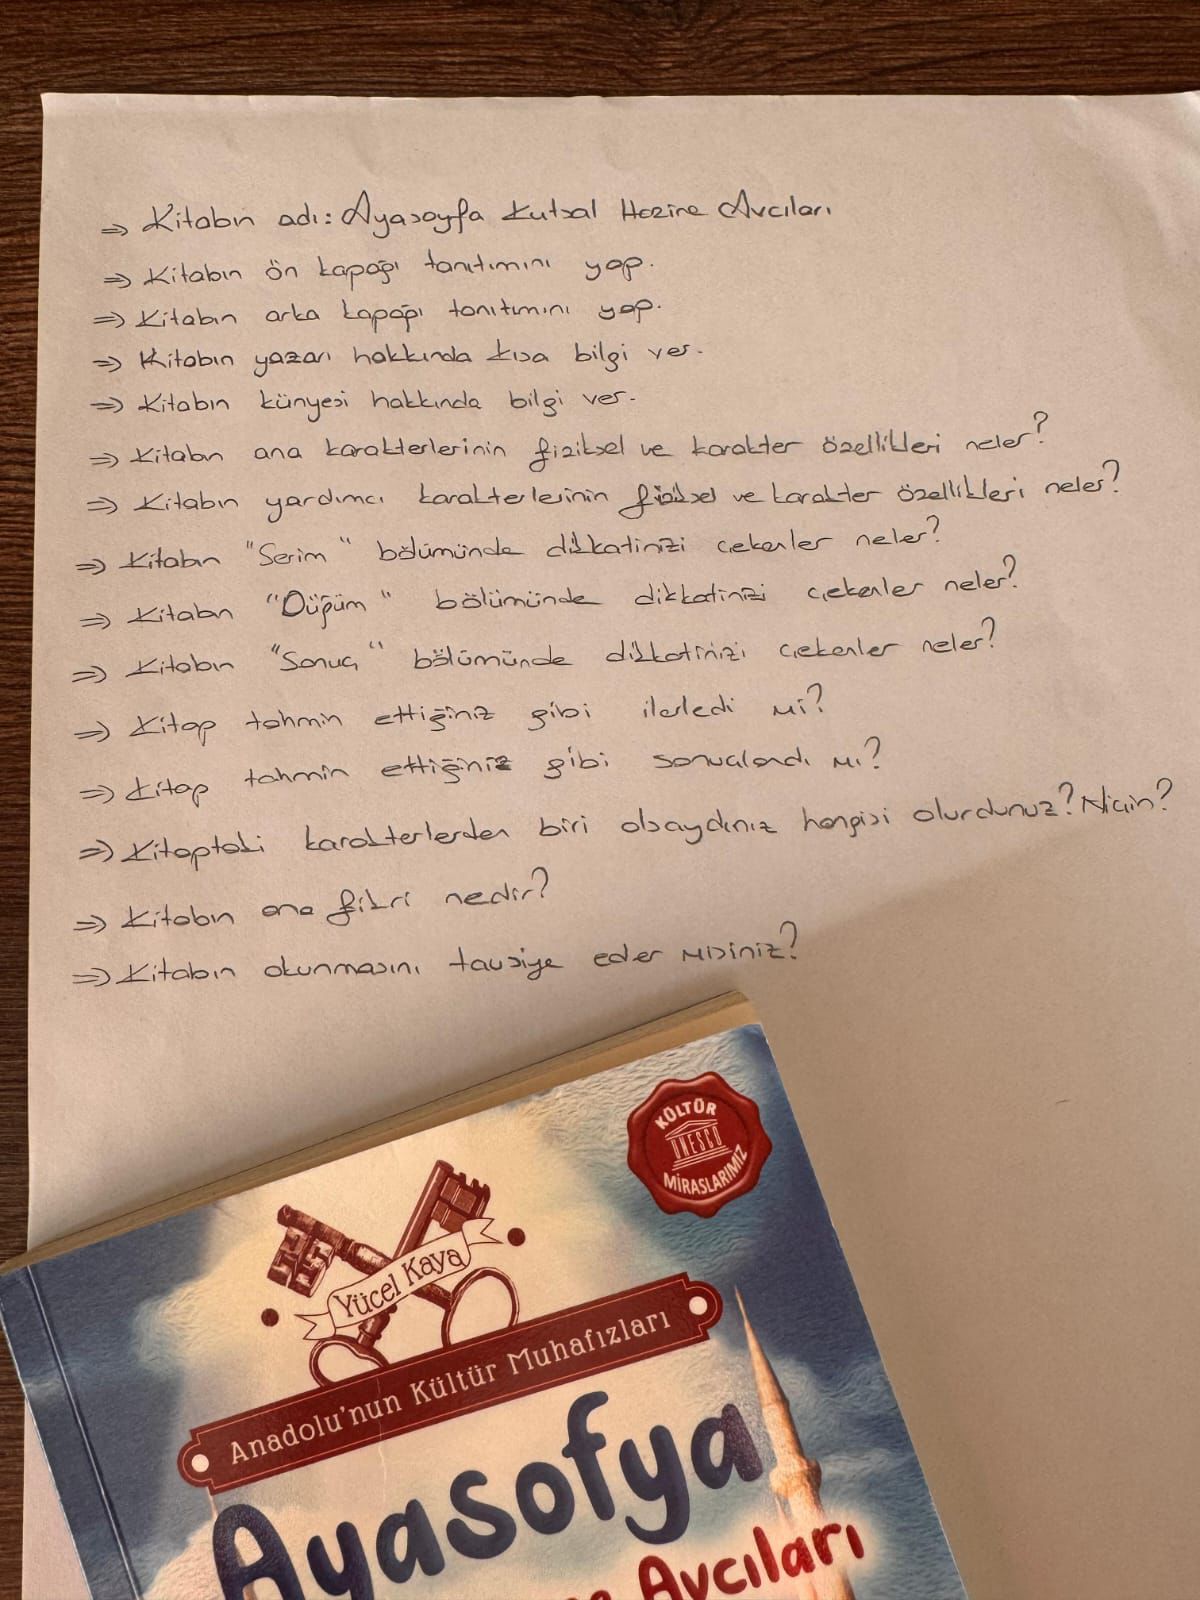 ⇒ Kitabın adı: Ayasoyfa Kutsal Hazine Avcıları
⇒ Kitabın ön kapağı tanıtımını yap.
⇒ Kitabın arka kapağı tanıtımını yap.
⇒ Kitabın yazarı hakkında kısa bilgi ver.
⇒ Kitabın künyesi hakkında bilgi ver.
⇒ Kitabın ana karakterlerinin fiziksel ve karakter özellikleri neler?
⇒ Kitabın yardımcı karakterlerinin fiziksel ve karakter özellikleri neler?
⇒ Kitabın "Serim" bölümünde dikkatinizi çekenler neler?
⇒ Kitabın "Düğüm" bölümünde dikkatinizi çekenler neler?
⇒ Kitabın "Sonuç" bölümünde dikkatinizi çekenler neler?
⇒ Kitap tahmin ettiğiniz gibi ilerledi mi?
⇒ Kitap tahmin ettiğiniz gibi sonuçlandı mı?
⇒ Kitaptaki karakterlerden biri olsaydınız hangisi olurdunuz? Niçin?
⇒ Kitabın ana fikri nedir?
⇒ Kitabın okunmasını tavsiye eder misiniz?
KÜLTÜR
UNESCO
MİRASLARIMIZ
Yücel Kaya
Anadolu'nun Kültür Muhafızları
Ayasofya
Avcıları